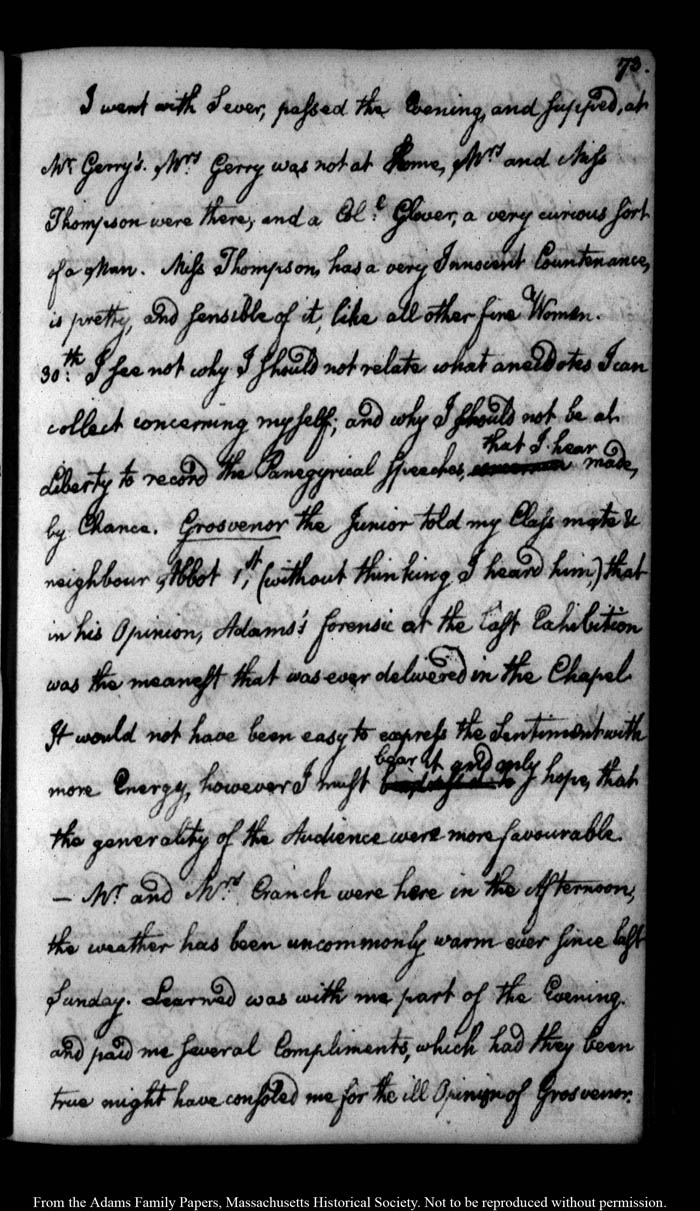 73.
I went with Sever, passed the Evening, and supped, at
Mr. Gerry's. Mrs. Gerry was not at Home, Mrs and Miss
Thompson were there, and a Col:l Glover, a very curious sort
of a Man. Miss Thompson, has a very Innocent Countenance,
is pretty, and sensible of it, like all other fine Women.
30:th I see not why I should not relate what anecdotes I can
collect concerning myself; and why I should not be at
that I hear
Liberty to record the Panegyrical speeches, made,
by Chance. Grosvenor the Junior told my Class mate &
neighbour Abbot 1st, (without thinking I heard him,) that
in his Opinion, Adams's forensic at the last Exhibition
was the meanest that was ever delivered in the Chapel.
It would not have been easy to express the Sentiment with
bear it and only
more Energy, however I must hope, that
the generality of the Audience were more favourable.
— Mr. and Mrs. Cranch were here in the Afternoon,
the weather has been uncommonly warm ever since last
Sunday. Learned was with me part of the Evening.
and paid me several Compliments, which had they been
true might have consoled me for the ill Opinion of Grosvenor.
From the Adams Family Papers, Massachusetts Historical Society. Not to be reproduced without permission.